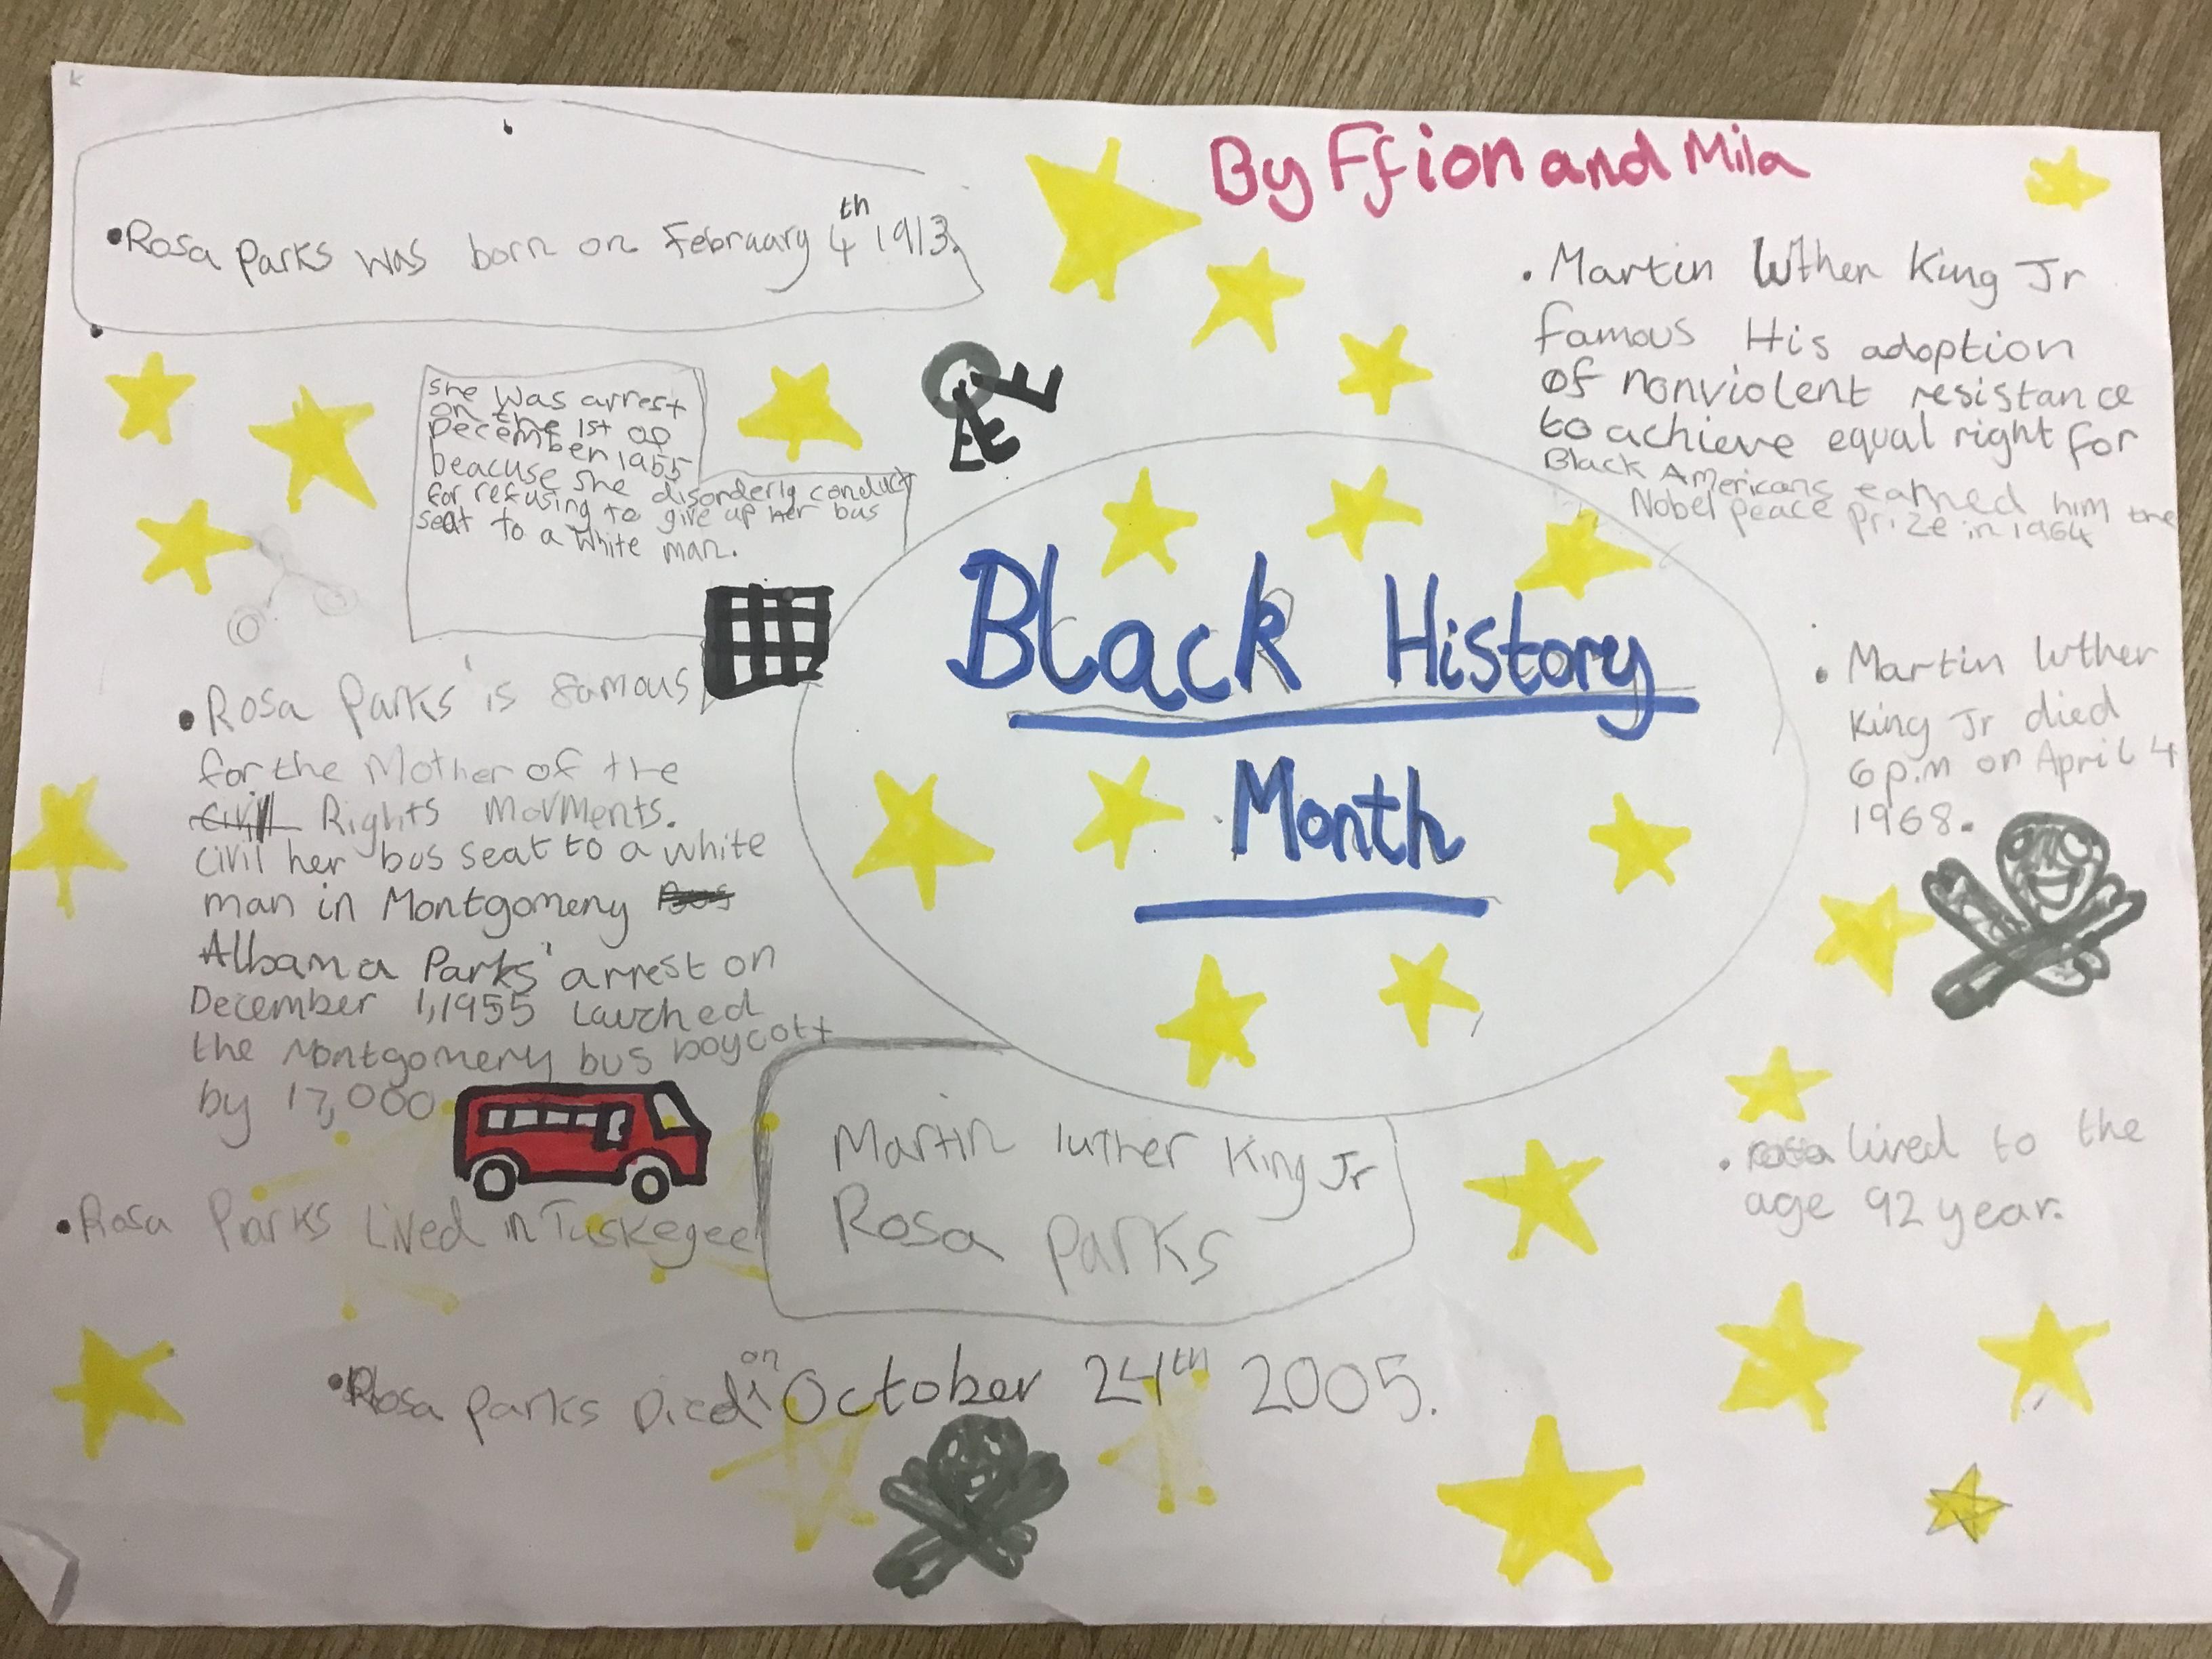 By Ffion and Mila
•Rosa Parks was born on February 4th 1913.
She was arrest
on the 1st of
December 1955
beacuse she disorderly conduct
for refusing to give up her bus
seat to a white man.
• Rosa Parks' is famous
for the Mother of the
Civil Rights Movments.
civil her bus seat to a white
man in Montgomeny Bus
Albama Parks' arrest on
December 1,1955 lauched
the Montgomery bus boycott
by 17,000
•Rosa Parks Lived in Tuskegee
Black History
Month
Martin luther King Jr
Rosa Parks
•Rosa Parks Died on October 24th 2005.
• Martin luther King Jr
famous His adoption
of nonviolent resistance
to achieve equal right for
Black Americans earned him the
Nobel peace prize in 1964
• Martin luther
King Jr died
6 p.m on April 4
1968.
• rosa lived to the
age 92 year.